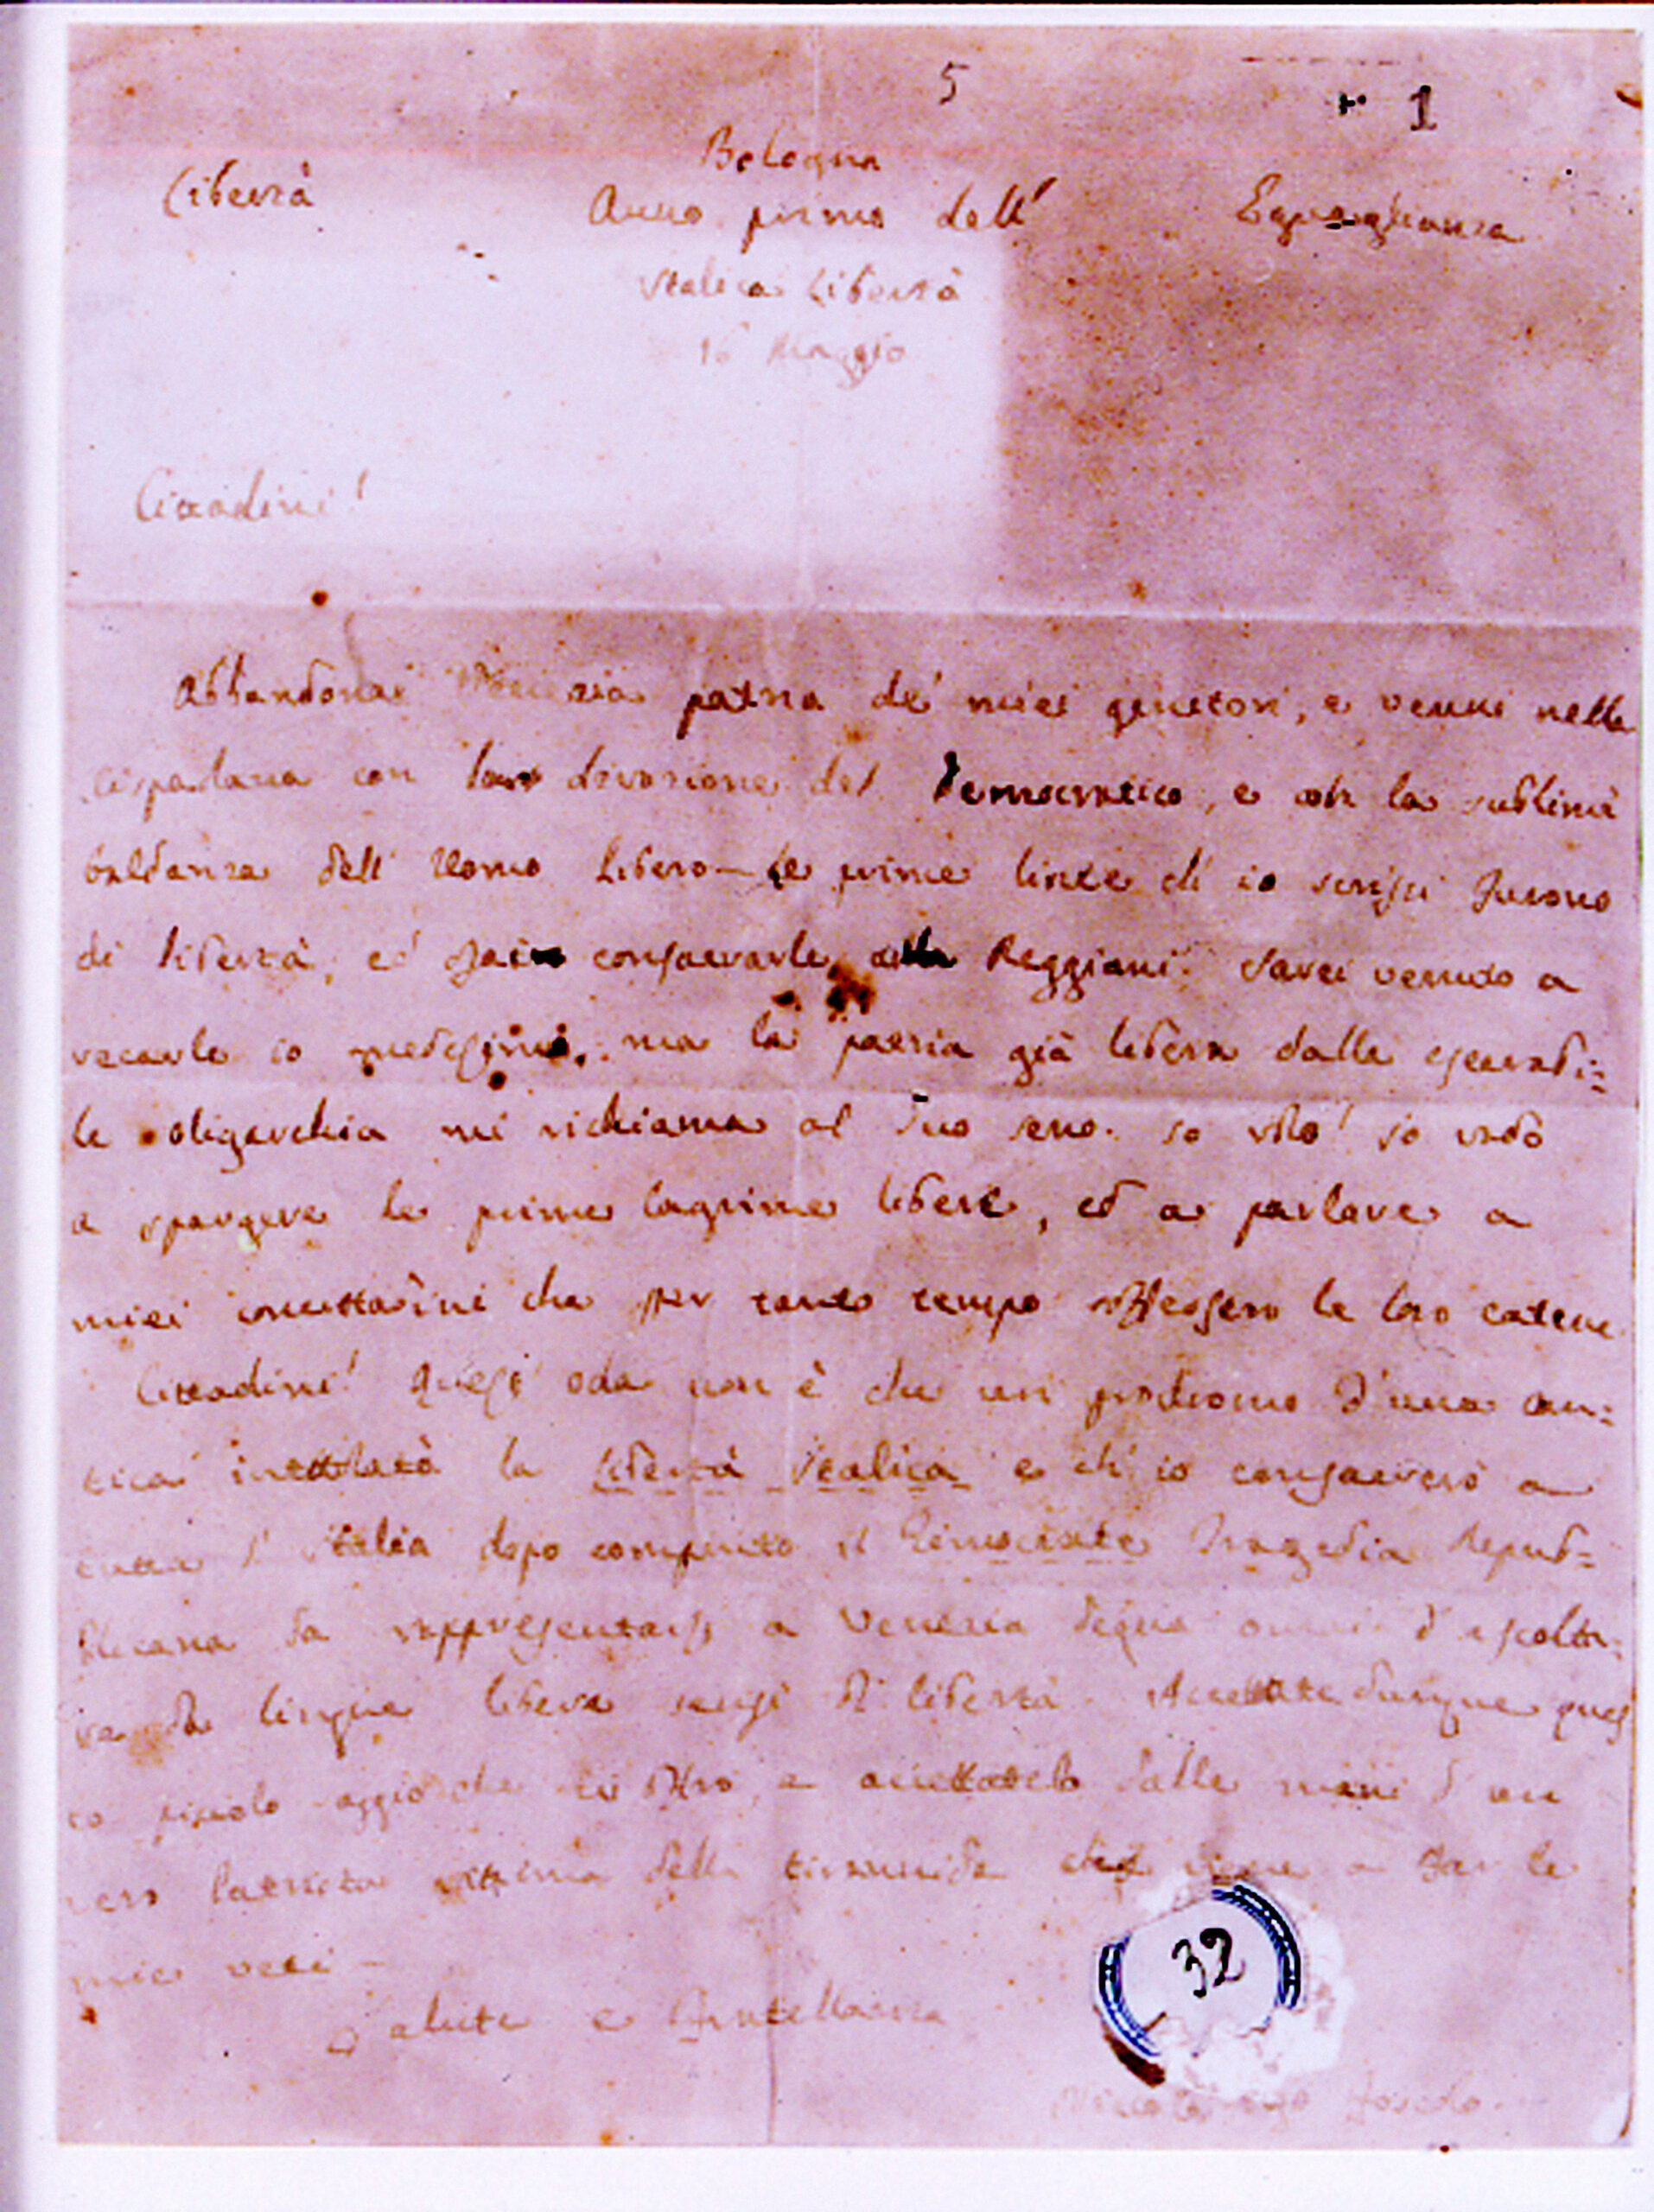 5
1
Bologna
Libertà Anno primo dell' Eguaglianza
Italica Libertà
16 Maggio
Cittadini!
Abbandonai Venezia patria de' miei genitori, e venni nella
Cispadana con divozione del Democratico, e con la sublime
baldanza dell' Uomo Libero — Le prime linee ch' io scrissi furono
di libertà, ed consacrarle Reggiani. Sarei venuto a
recarle io medesimo, ma la patria già libera dalla esecrabi=
le oligarchia mi richiama al suo seno. Io volo! Io vado
a spargere le prime lagrime libere, ed a parlare a
miei concittadini che per tanto tempo soffersero le loro catene.
Cittadini! Quest' oda non è che un prodromo d'una can=
tica intitolata la Libertà Italica e ch' io consacrerò a
tutta l' Italia dopo compiuto il Timocrate Tragedia Repub=
blicana da rappresentarsi a Venezia degna omai d' ascolta=
re da lingua libera sensi di libertà. Accettate dunque ques
to piccolo saggio che vi offro, e accettatelo dalle mani d' un
vero Patriota vittima della tirannide che viene a far le
mie veci —
Salute e Fratellanza
32
Niccolò Ugo Foscolo.